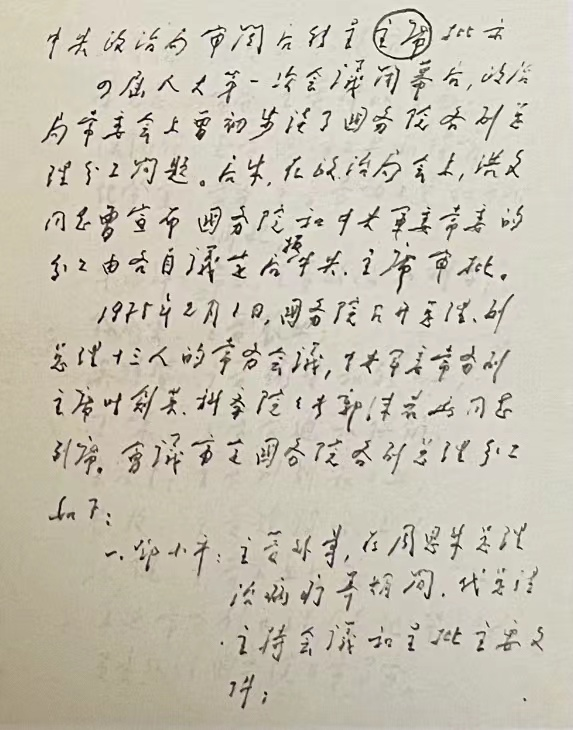 中央政治局审阅后转呈主席批示
四届人大第一次会议闭幕后，政治
局常委会上曾初步谈了国务院各副总
理分工问题。后来，在政治局会上，洪文
同志曾宣布国务院和中央军委常委的
分工由各自议定后报中央、主席审批。
1975年2月1日，国务院召开总理、副
总理十三人的常务会议，中央军委常务副
主席叶剑英、科学院院长郭沫若两同志
列席。会议审定国务院各副总理分工
如下：
一、邓小平：主管外事，在周恩来总理
治病疗养期间，代总理
主持会议和呈批主要文
件；